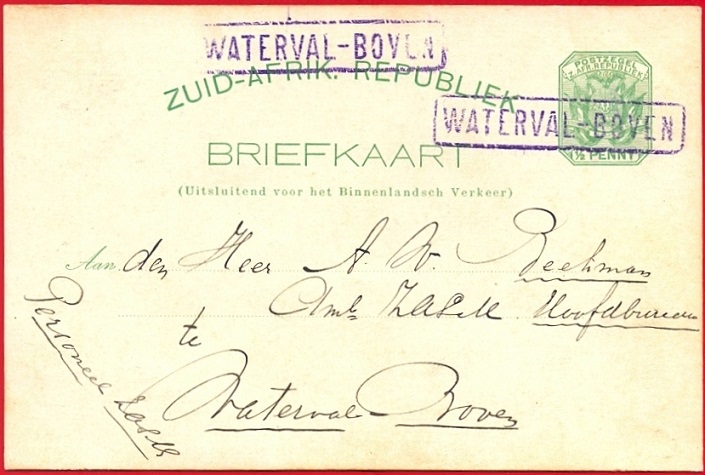 WATERVAL-BOVEN
ZUID-AFRIK. REPUBLIEK
POSTZEGEL
Z. AFR. REPUBLIEK
WATERVAL-BOVEN
½ PENNY
BRIEFKAART
(Uitsluitend voor het Binnenlandsch Verkeer)
Aan den Heer A. W. Beekman
Ambt ZASM Hoofdbureau
te
Waterval Boven
Personeel ZASM